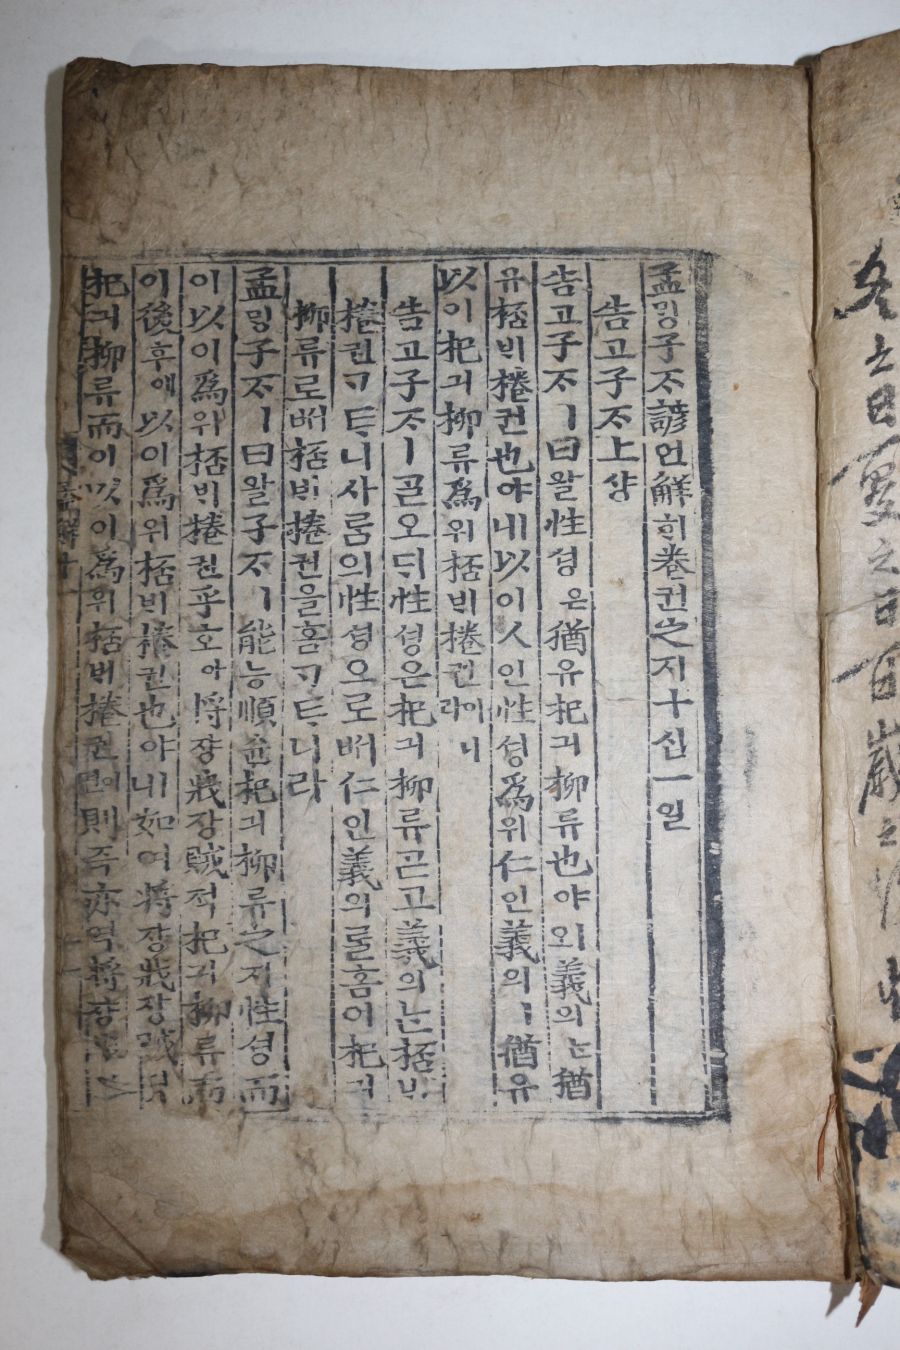 孟ᄆᆡᇰ子ᄌᆞ諺언觧ᄒᆡ卷권之지十십一일
告고子ᄌᆞ上샹
告고子ᄌᆞㅣ曰왈性셩은猶유杞긔柳류也야ㅣ오義의ᄂᆞᆫ猶
유桮ᄇᆡ棬권也야ㅣ니以이人인性셩爲위仁인義의ㅣ猶유
以이杞긔柳류爲위桮ᄇᆡ棬권이니라
告고子ᄌᆞㅣᄀᆞᆯ오ᄃᆡ性셩은杞긔柳류ᄀᆞᆮ고義의ᄂᆞᆫ桮ᄇᆡ
棬권ᄀᆞᄐᆞ니사ᄅᆞᆷ의性셩으로ᄡᅥ仁인義의ᄅᆞᆯ홈이杞긔
柳류로ᄡᅥ桮ᄇᆡ棬권을홈ᄀᆞᄐᆞ니라
孟ᄆᆡᇰ子ᄌᆞㅣ曰왈子ᄌᆞㅣ能능順슌杞긔柳류之지性셩而
이以이爲위桮ᄇᆡ棬권乎호아將쟝戕장賊적杞긔柳류而
이後후에以이爲위桮ᄇᆡ棬권也야ㅣ니如여將쟝戕장賊적
杞긔柳류而이以이爲위桮ᄇᆡ棬권이면則즉亦역將쟝
冬之日夏之日百歲之